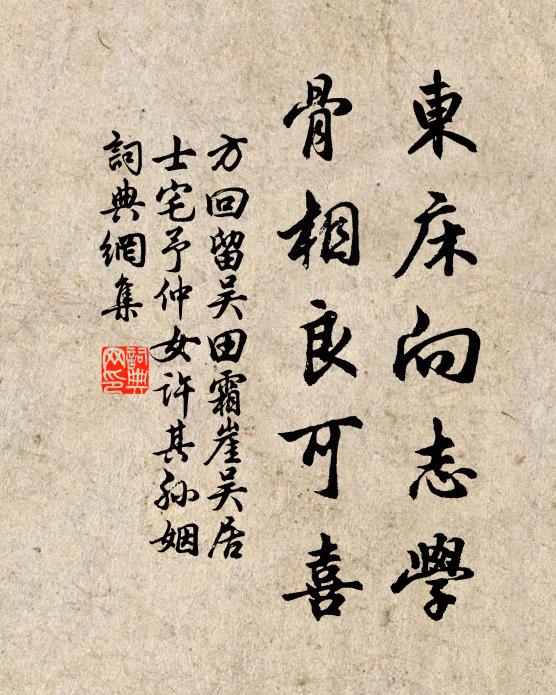 東床向志學
骨相良可喜
方回留吴田霜崖吴居
士宅予仲女許其孙姻
詞典網集
詞典
网印